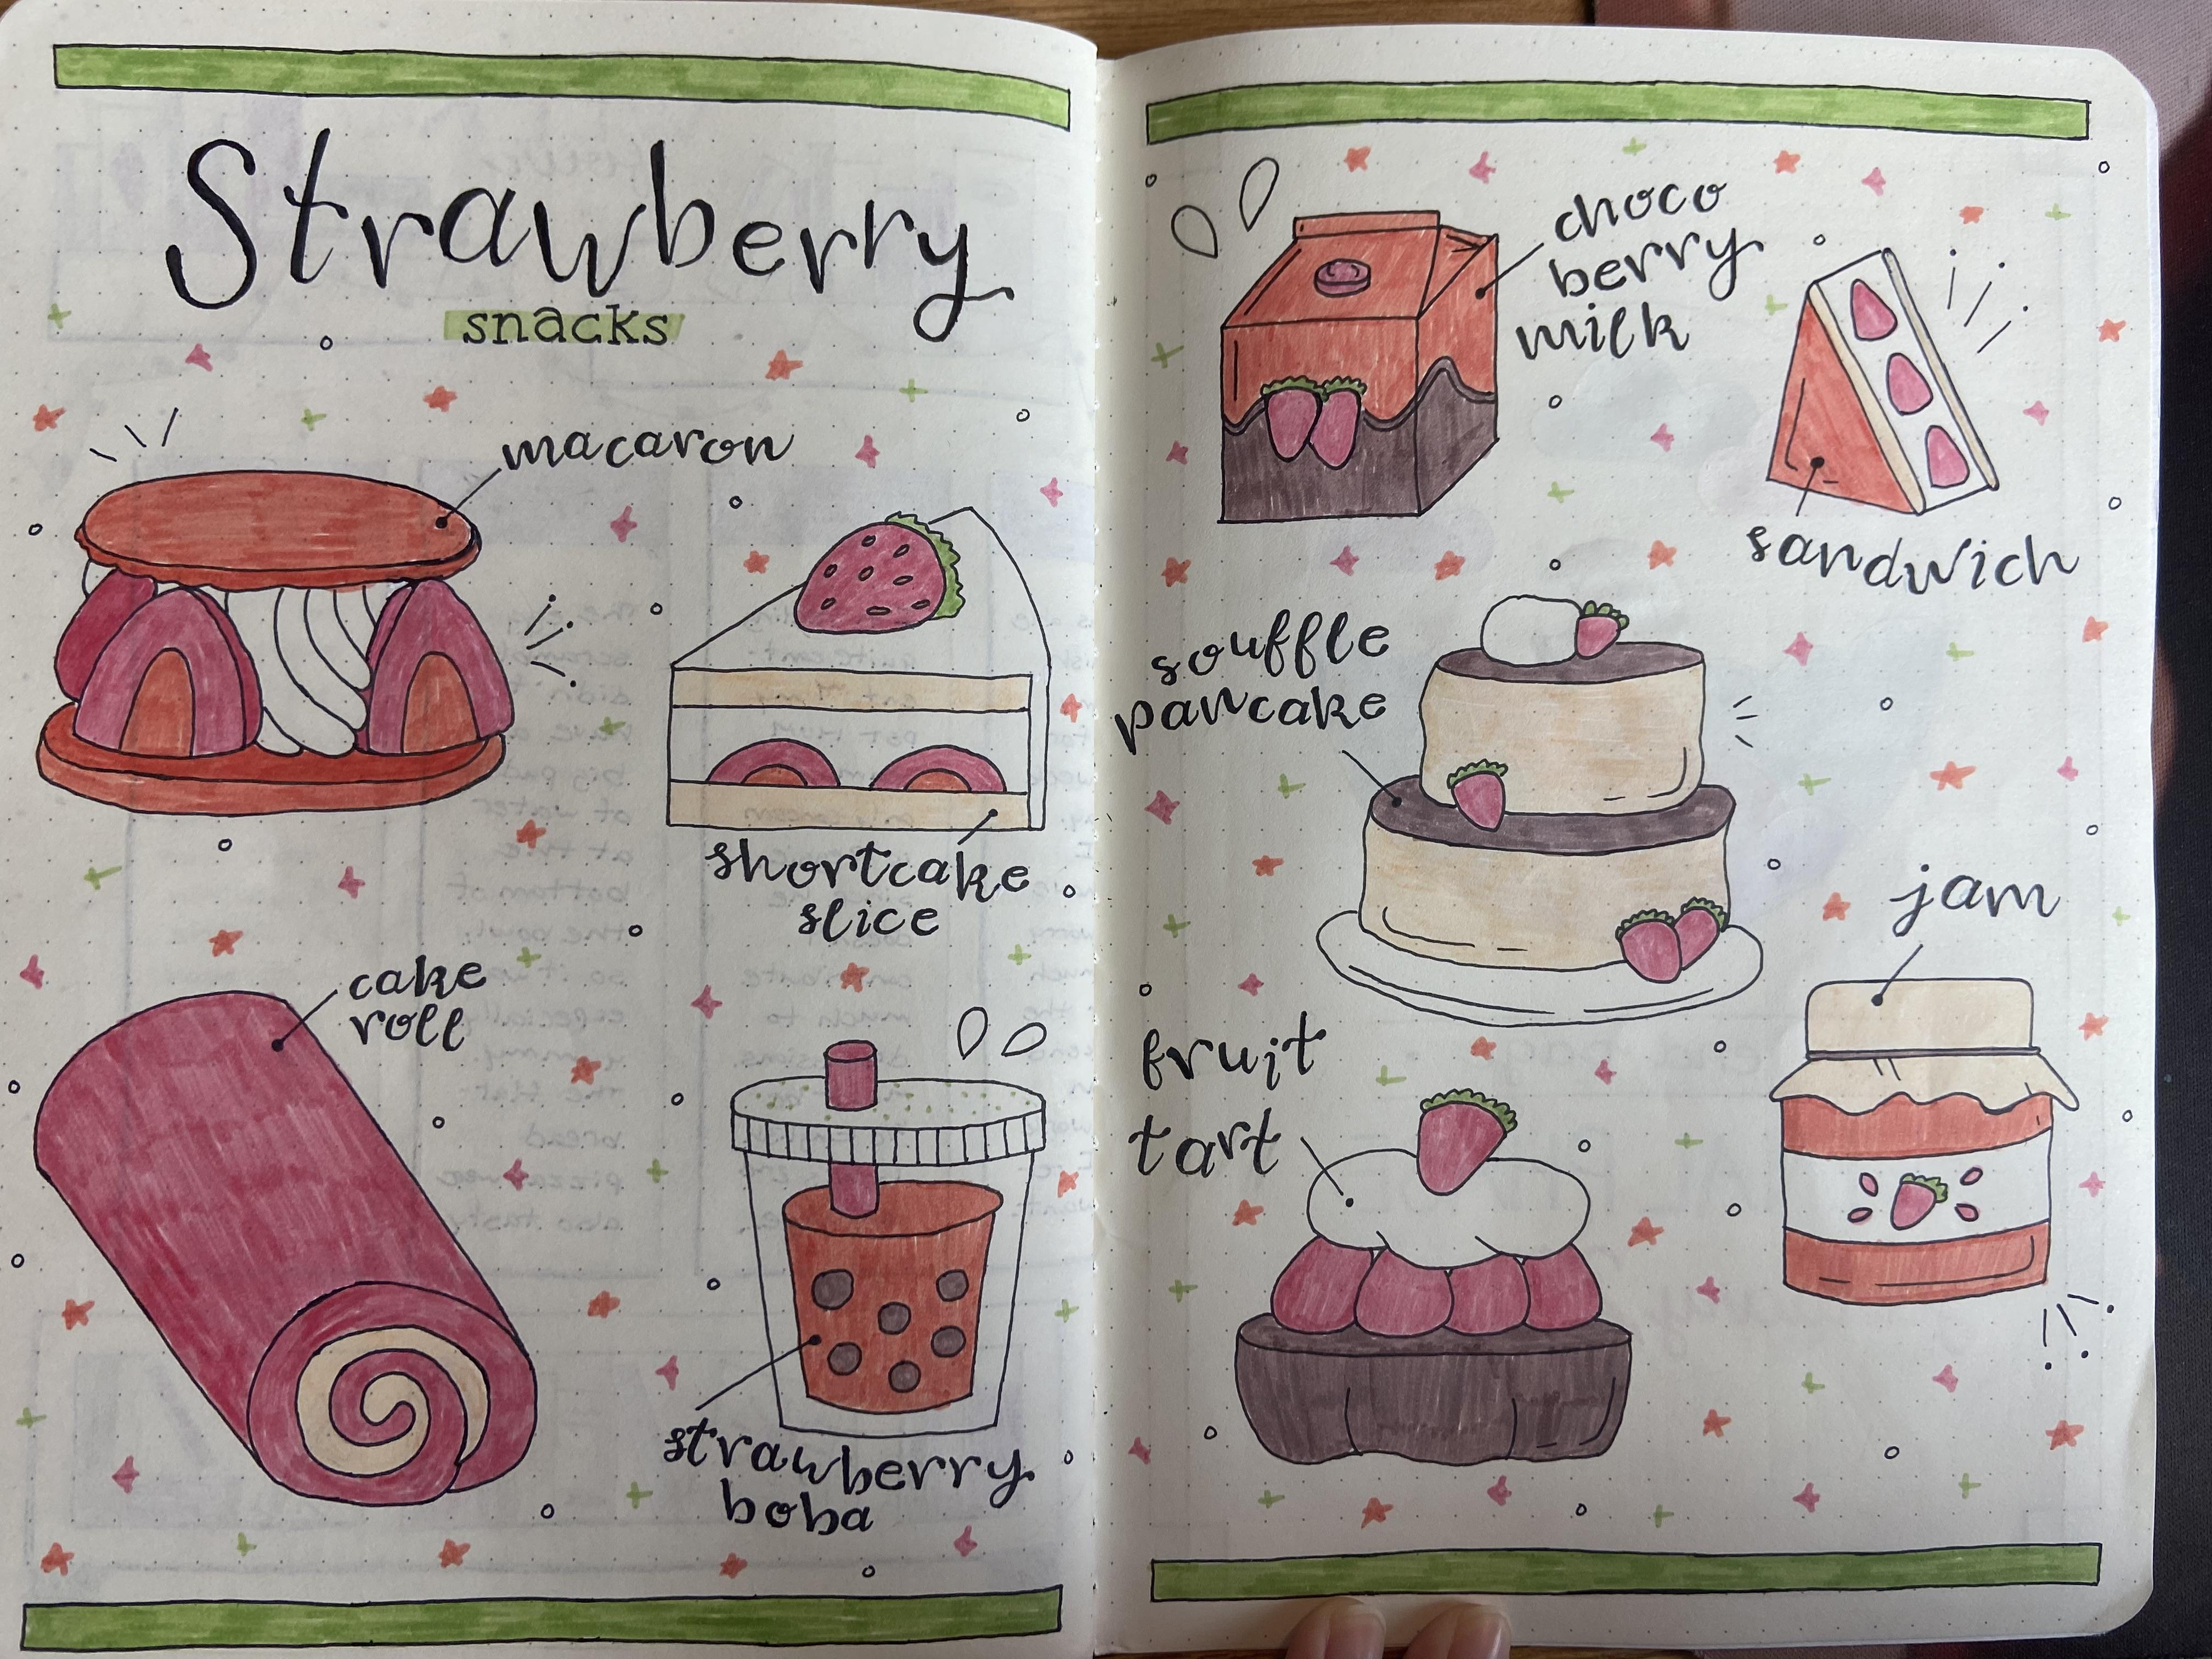 Strawberry
snacks
macaron
shortcake
slice
cake
roll
strawberry
boba
choco
berry
milk
sandwich
souffle
pancake
jam
fruit
tart